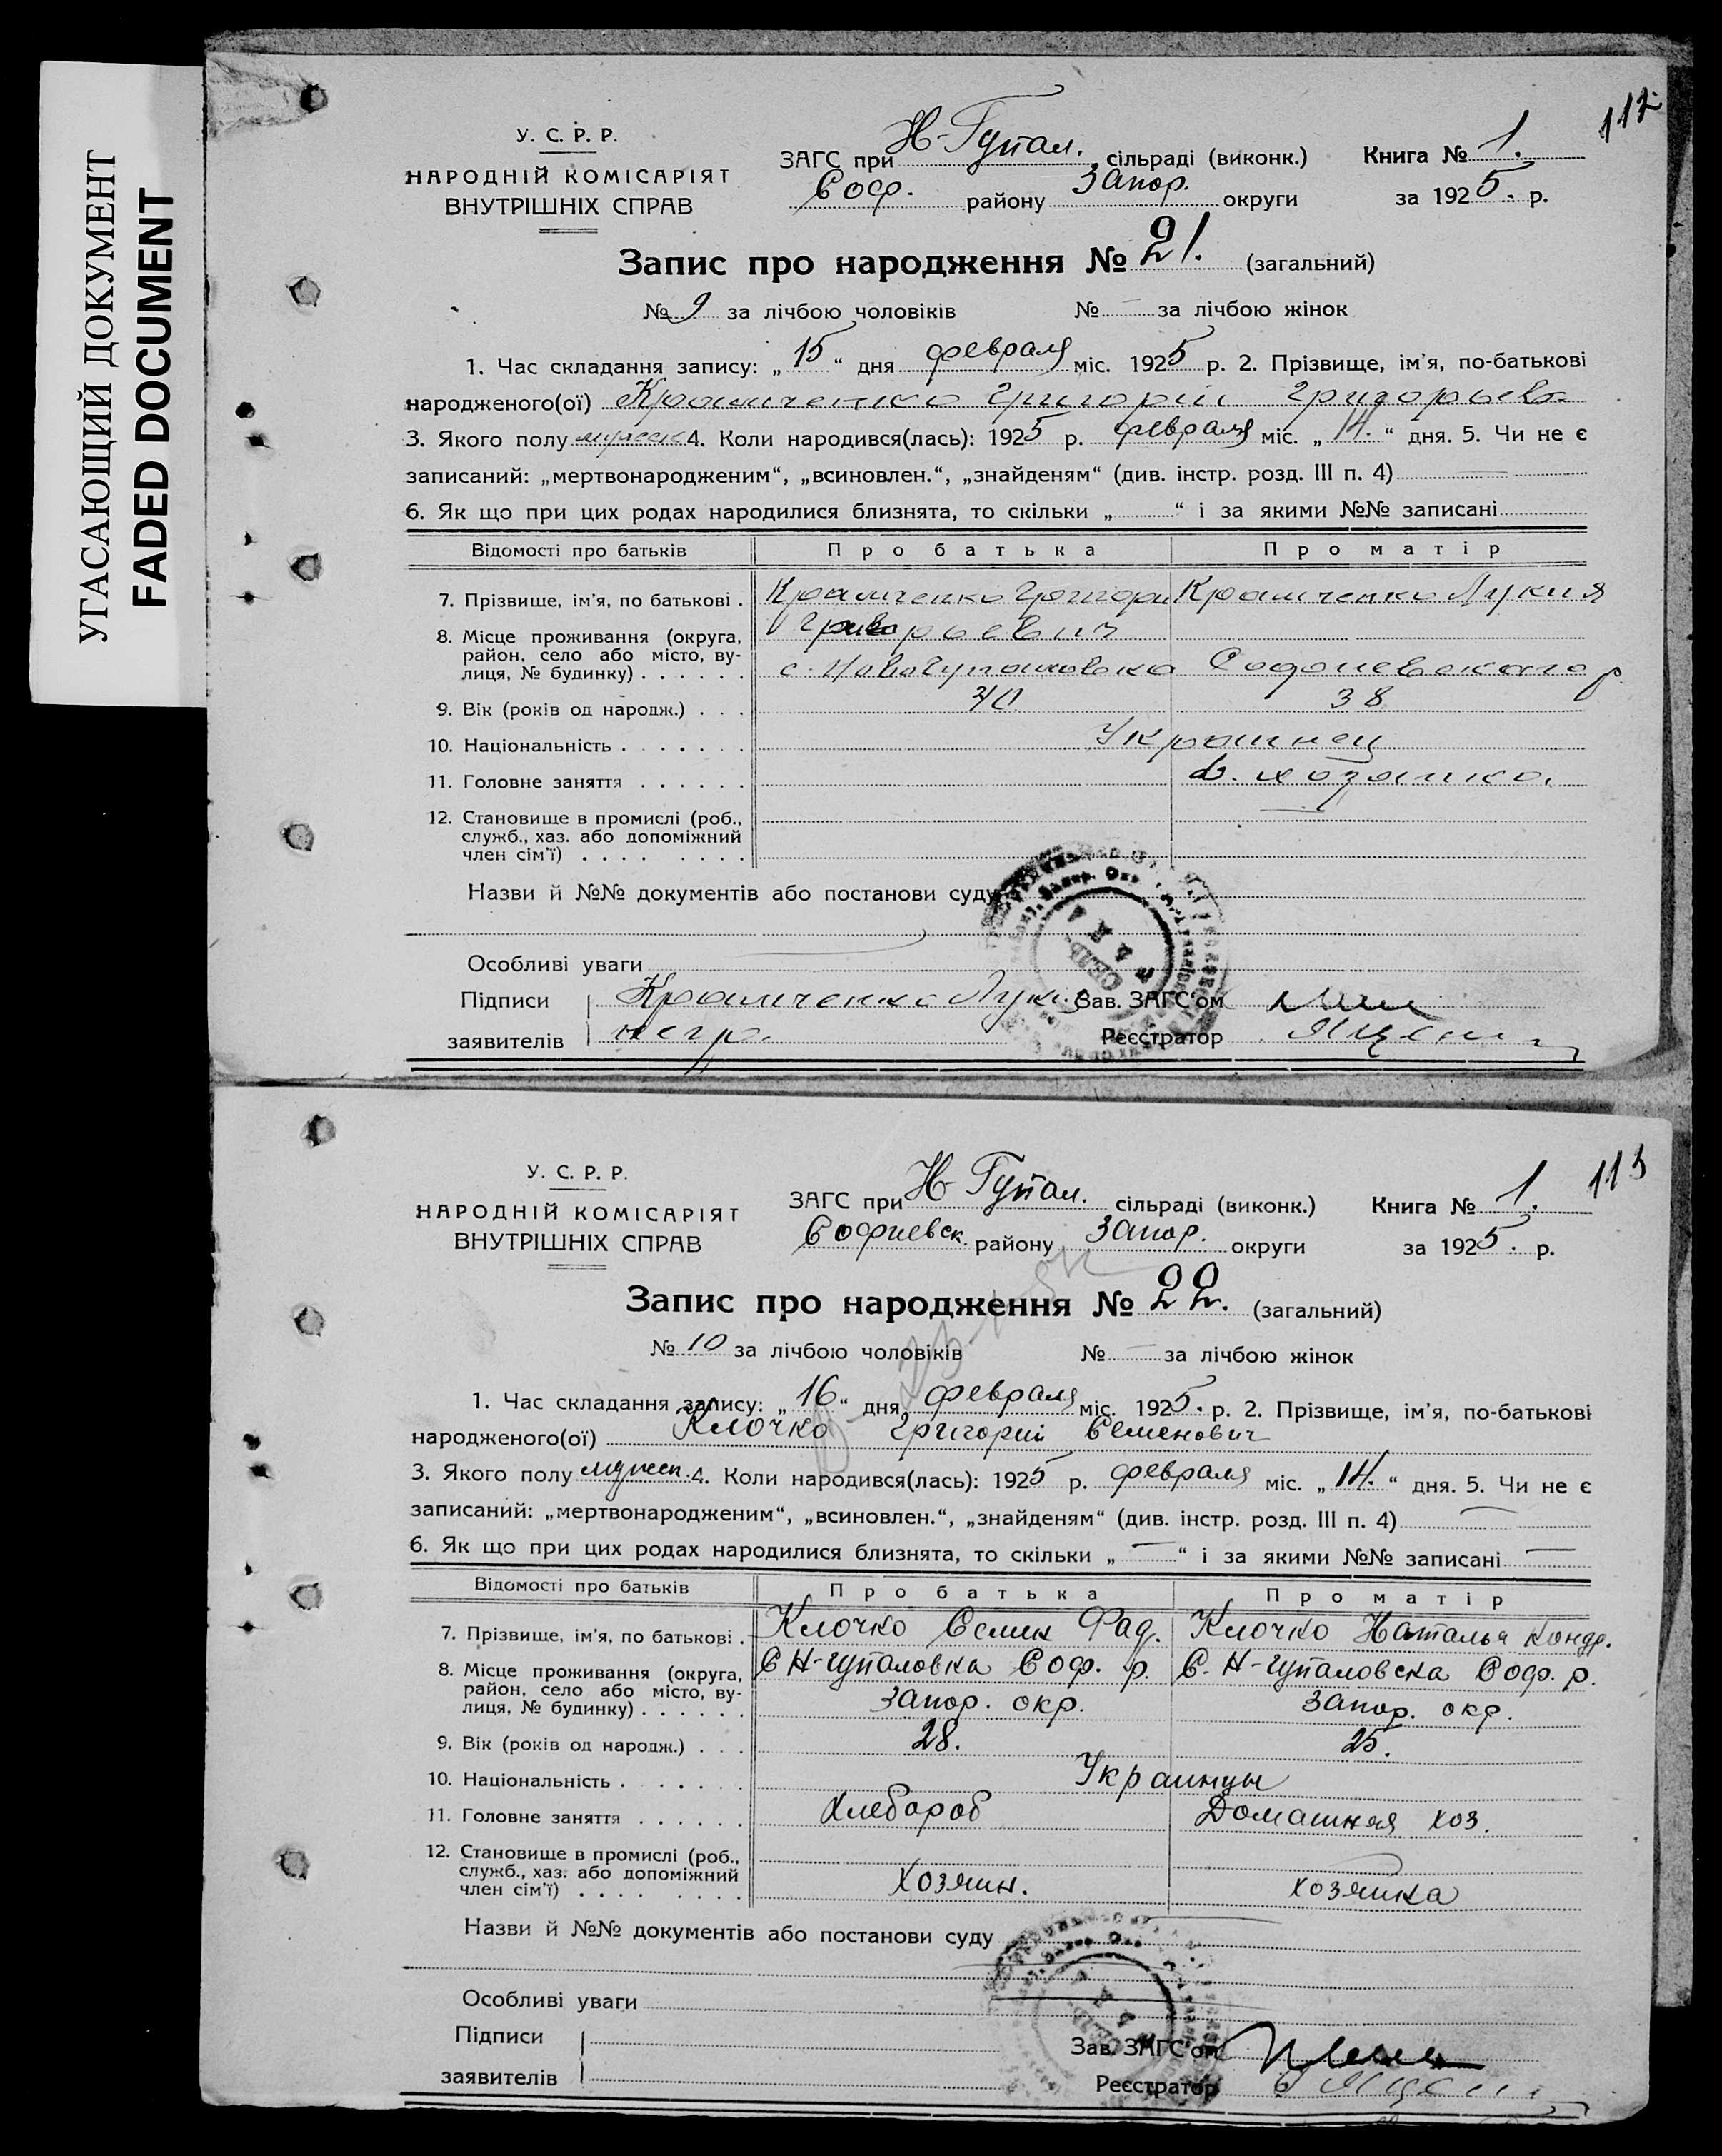 УГАСАЮЩИЙ ДОКУМЕНТ
FADED DOCUMENT
112
У. С. Р. Р.
НАРОДНІЙ КОМІСАРІЯТ
ВНУТРІШНІХ СПРАВ
ЗАГС при Н-Гупал. сільраді (виконк.) Книга № 1.
Соф. району Запор. округи за 1925. р.
Запис про народження № 21. (загальний)
№ 9 за лічбою чоловіків № — за лічбою жінок
1. Час складання запису: „15“ дня февраля міс. 1925 р. 2. Прізвище, ім'я, по-батькові
народженого(ої) Крамченко Григорій
3. Якого полу мужеск 4. Коли народився(лась): 1925 р. февраля міс. „14.“ дня. 5. Чи не є
записаний: „мертвонародженим“, „всиновлен.“, „знайденям“ (див. інстр. розд. III п. 4)
6. Як що при цих родах народилися близнята, то скільки „ “ і за якими №№ записані
Відомості про батьків Про батька Про матір
7. Прізвище, ім'я, по батькові . Крамченко Григори Крамченко Лукия
8. Місце проживання (округа, Григорьевич
район, село або місто, ву-
лиця, № будинку) . . . . . . с. Новогупаловка Софиевского р.
9. Вік (років од народж.) . . . 40 38
10. Національність . . . . . . . Украинец
11. Головне заняття . . . . . . Д. хозяйка.
12. Становище в промислі (роб.,
служб., хаз. або допоміжний
член сім'ї) . . . . . . . .
Назви й №№ документів або постанови суду
Особливі уваги
Підписи Крамченко Лукия Зав. ЗАГС'ом
заявителів негр. Реєстратор
113
У. С. Р. Р.
НАРОДНІЙ КОМІСАРІЯТ
ВНУТРІШНІХ СПРАВ
ЗАГС при Н-Гупал. сільраді (виконк.) Книга № 1.
Софиевск. району Запор. округи за 1925. р.
Запис про народження № 22. (загальний)
№ 10 за лічбою чоловіків № — за лічбою жінок
1. Час складання запису: „16“ дня февраля міс. 1925. р. 2. Прізвище, ім'я, по-батькові
народженого(ої) Клочко Григорий Семенович
3. Якого полу мужеск. 4. Коли народився(лась): 1925 р. февраля міс. „14.“ дня. 5. Чи не є
записаний: „мертвонародженим“, „всиновлен.“, „знайденям“ (див. інстр. розд. III п. 4) —
6. Як що при цих родах народилися близнята, то скільки „—“ і за якими №№ записані —
Відомості про батьків Про батька Про матір
7. Прізвище, ім'я, по батькові . Клочко Семен Фад. Клочко Наталья Кондр.
8. Місце проживання (округа, С Н-гупаловка Соф. р. С. Н-гупаловска Соф. р.
район, село або місто, ву-
лиця, № будинку) . . . . . . Запор. окр. Запор. окр.
9. Вік (років од народж.) . . . 28. 25.
10. Національність . . . . . . . Украинцы
11. Головне заняття . . . . . . Хлебороб Домашная хоз.
12. Становище в промислі (роб.,
служб., хаз. або допоміжний
член сім'ї) . . . . . . . . Хозяин. хозяйка
Назви й №№ документів або постанови суду
Особливі уваги
Підписи Зав. ЗАГС'ом
заявителів Реєстратор